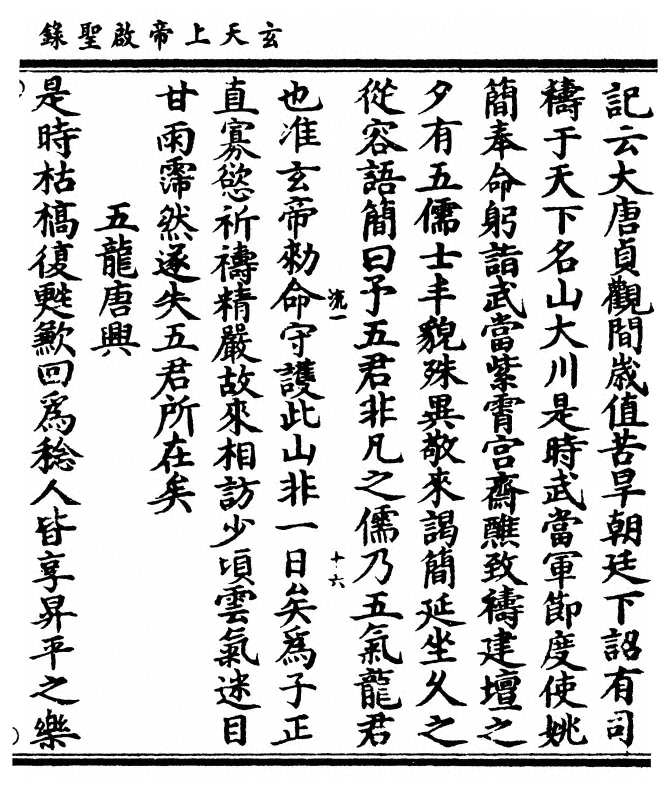 玄天上帝啟聖錄
記云大唐貞觀間歲值苦旱朝廷下詔有司
禱于天下名山大川是時武當軍節度使姚
簡奉命躬詣武當紫霄宮齋醮致禱建壇之
夕有五儒士丰貌殊異敬來謁簡延坐久之
從容語簡曰予五君非凡之儒乃五氣龍君
流一
十六
也准玄帝勑命守護此山非一日矣為子正
直寡慾祈禱精嚴故來相訪少頃雲氣迷目
甘雨霈然遂失五君所在矣
五龍唐興
是時枯槁復甦歉回為稔人皆享昇平之樂